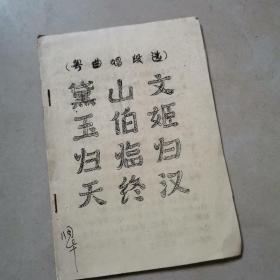 (粤曲唱段选)
文姬归汉
山伯临终
黛玉归天